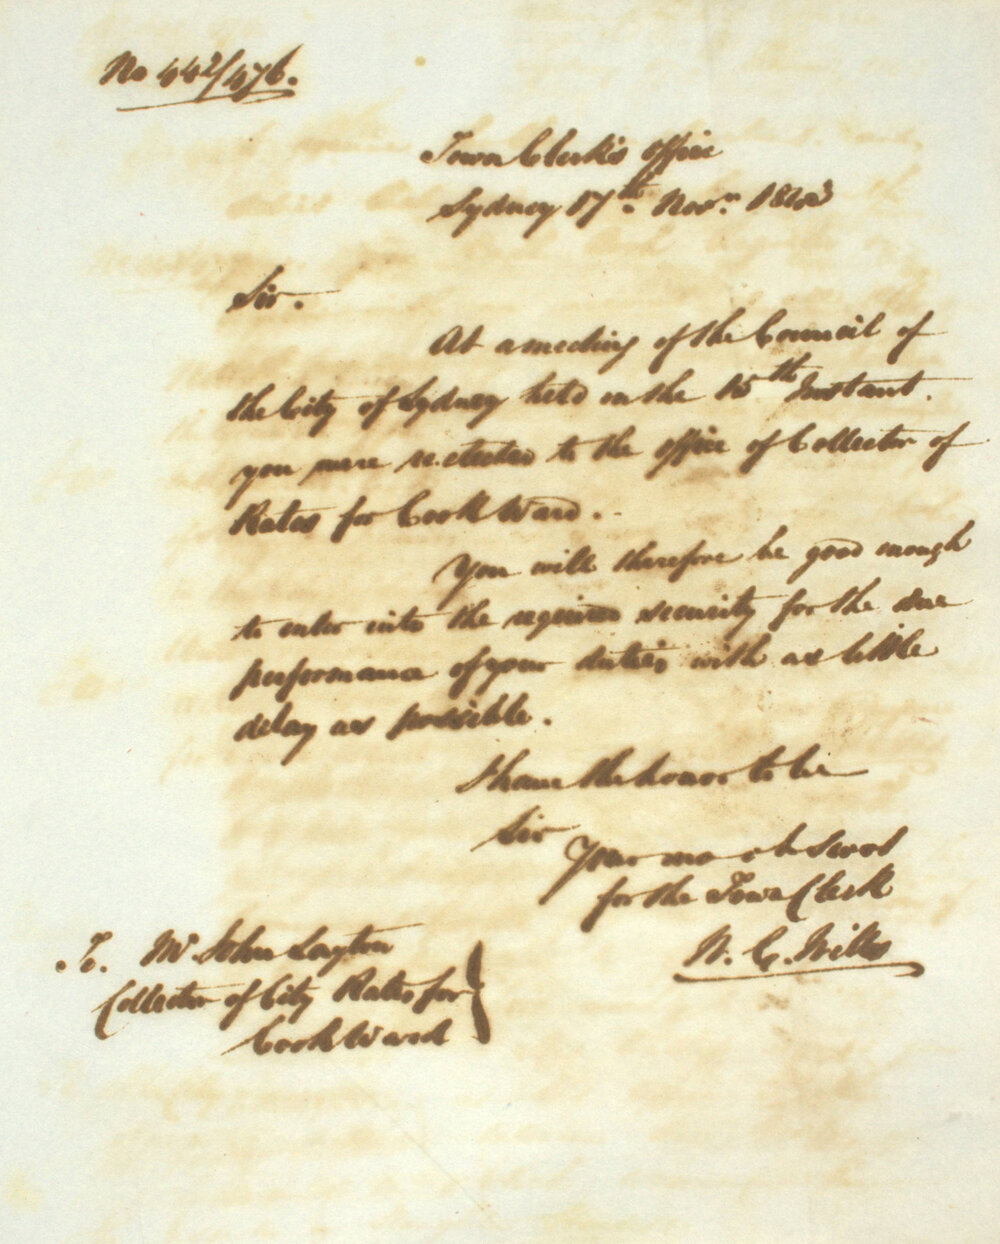 No 442/476.
Town Clerk's Office
Sydney 17th. Novr. 1843
Sir.
At a meeting of the Council of
the City of Sydney held on the 15th Instant.
you were re.elected to the office of Collector of
Rates for Cook Ward.
You will therefore be good enough
to enter into the required security for the due
performance of your duties with as little
delay as possible.
I have the honor to be
Sir
Your mo ob Servt
for the Town Clerk
To. Mr John Layton
Collector of City Rates for
Cook Ward